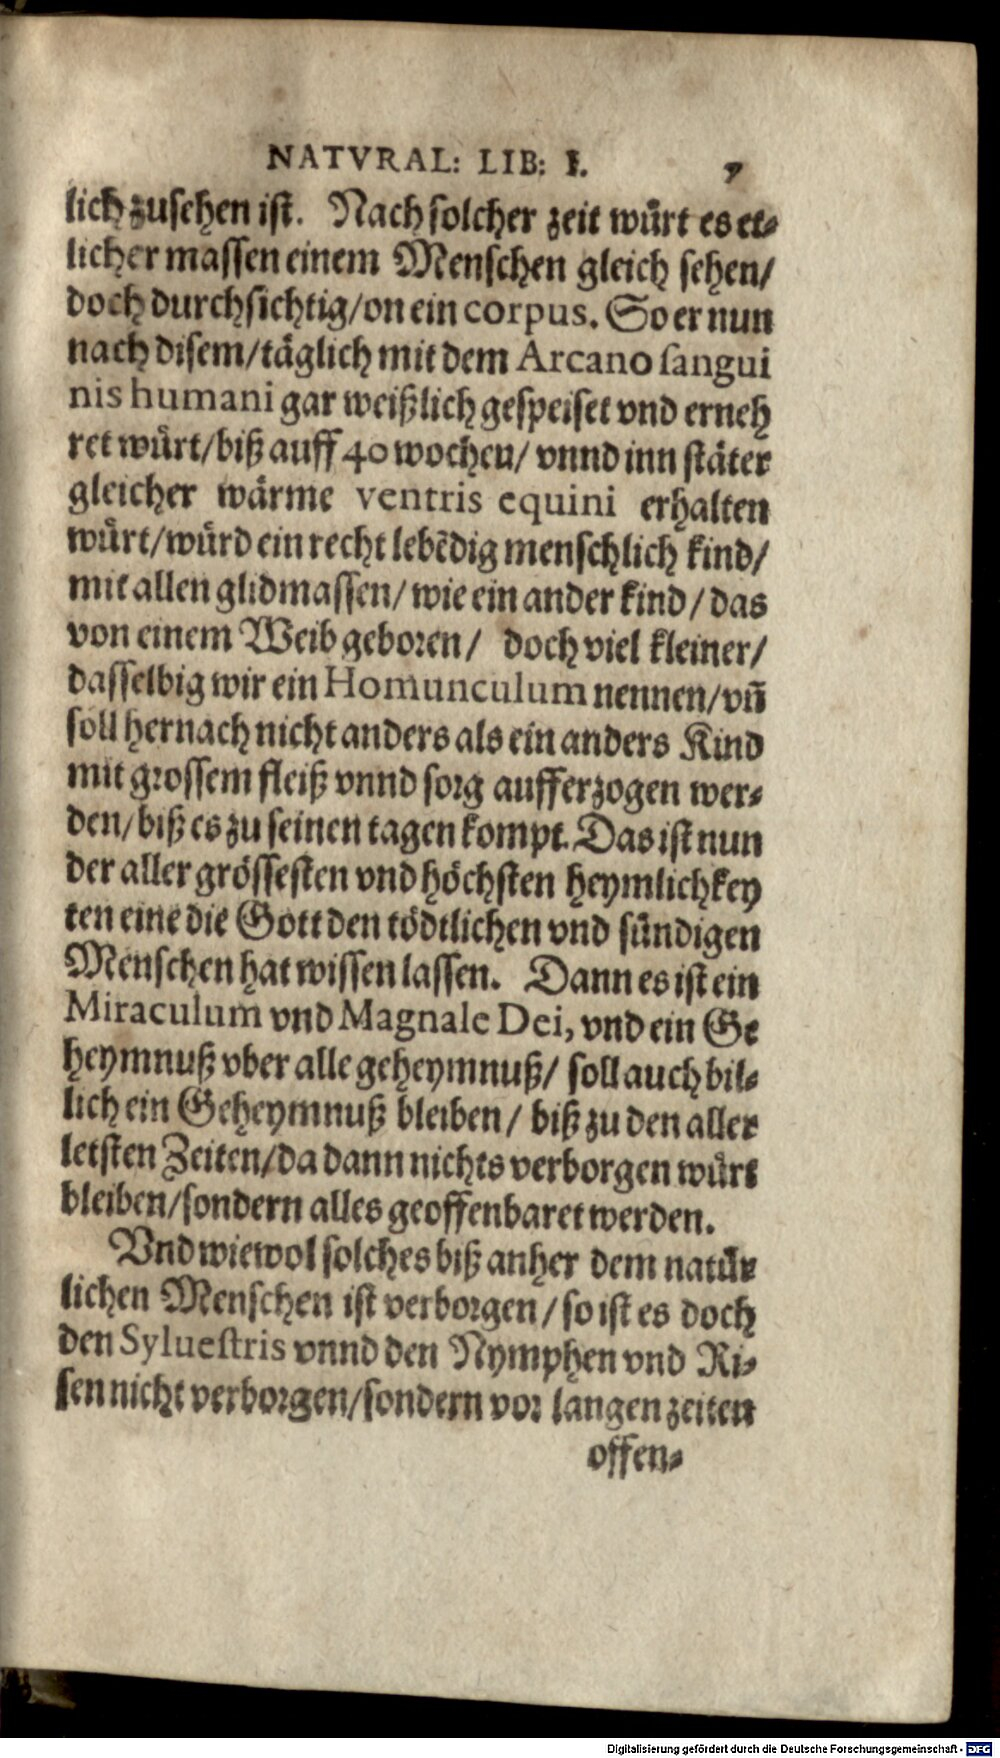 NATVRAL: LIB: I. 7
lich zusehen ist. Nach solcher zeit wuͤrt es et⸗
licher massen einem Menschen gleich sehen/
doch durchsichtig/on ein corpus. So er nun
nach disem/taͤglich mit dem Arcano sangui
nis humani gar weißlich gespeiset vnd erneh
ret wuͤrt/biß auff 40 wochen/ vnnd inn staͤter
gleicher waͤrme ventris equini erhalten
wuͤrt/wuͤrd ein recht lebẽdig menschlich kind/
mit allen glidmassen/ wie ein ander kind/ das
von einem Weib geboren/ doch viel kleiner/
dasselbig wir ein Homunculum nennen/vñ
soll hernach nicht anders als ein anders Kind
mit grossem fleiß vnnd sorg aufferzogen wer⸗
den/biß es zu seinen tagen kompt. Das ist nun
der aller groͤssesten vnd hoͤchsten heymlichkey
ten eine die Gott den toͤdtlichen vnd suͤndigen
Menschen hat wissen lassen. Dann es ist ein
Miraculum vnd Magnale Dei, vnd ein Ge
heymnuß vber alle geheymnuß/ soll auch bil⸗
lich ein Geheymnuß bleiben/ biß zu den aller
letsten Zeiten/da dann nichts verborgen wuͤrt
bleiben/sondern alles geoffenbaret werden.
Vnd wiewol solches biß anher dem natuͤr
lichen Menschen ist verborgen/ so ist es doch
den Syluestris vnnd den Nymphen vnd Ri⸗
sen nicht verborgen/sondern vor langen zeiten
offen⸗
Digitalisierung gefördert durch die Deutsche Forschungsgemeinschaft - DFG